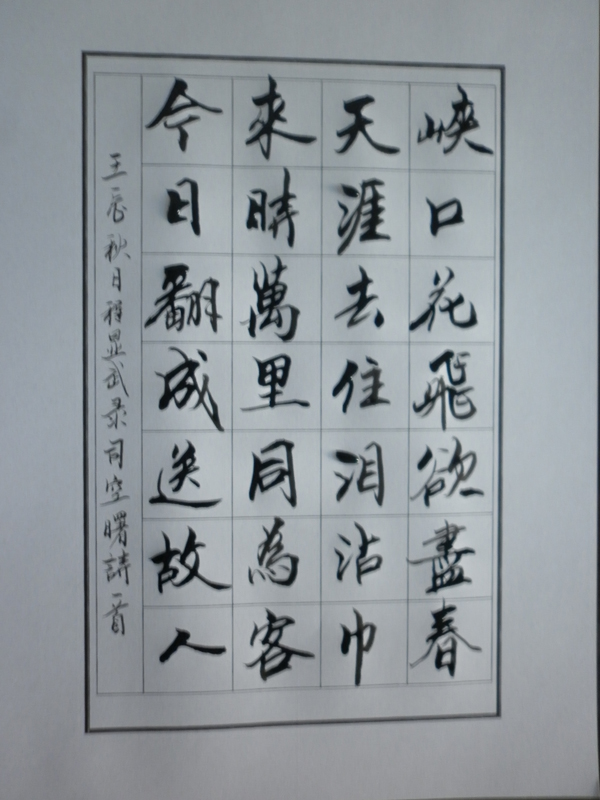 峽口花飛欲盡春
天涯去住泪沾巾
來時萬里同為客
今日翻成送故人
壬辰秋日程显武录司空曙詩一首